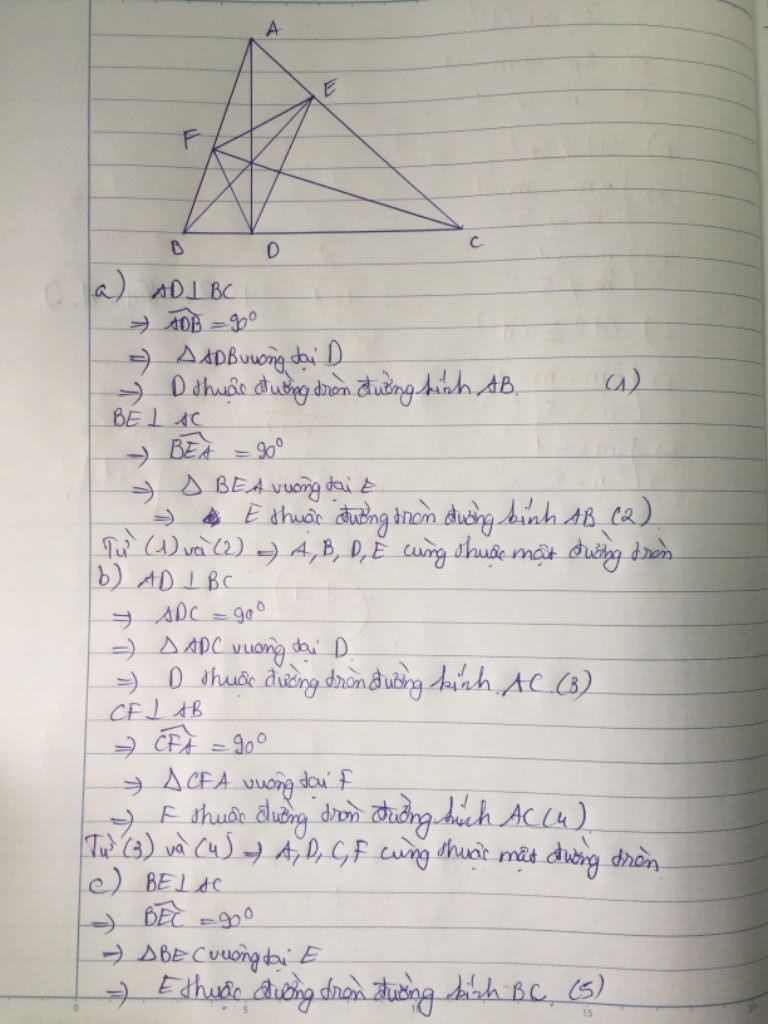 A
E
F
B
D
C
a) AD⊥BC
⇒ ADB = 90°
⇒ Δ ADB vuông tại D
⇒ D thuộc đường tròn đường kính AB. (1)
BE⊥ AC
⇒ BEA = 90°
⇒ Δ BEA vuông tại E
⇒ E thuộc đường tròn đường kính AB (2)
Từ (1) và (2) ⇒ A, B, D, E cùng thuộc một đường tròn
b) AD ⊥ BC
⇒ ADC = 90°
⇒ Δ ADC vuông tại D
⇒ D thuộc đường tròn đường kính AC (3)
CF⊥ AB
⇒ CFA = 90°
⇒ Δ CFA vuông tại F
⇒ F thuộc đường tròn đường kính AC (4)
Từ (3) và (4) ⇒ A, D, C, F cùng thuộc một đường tròn
c) BE⊥ AC
⇒ BEC = 90°
⇒ ΔBEC vuông tại E
⇒ E thuộc đường tròn đường kính BC (5)
0 5 15 20